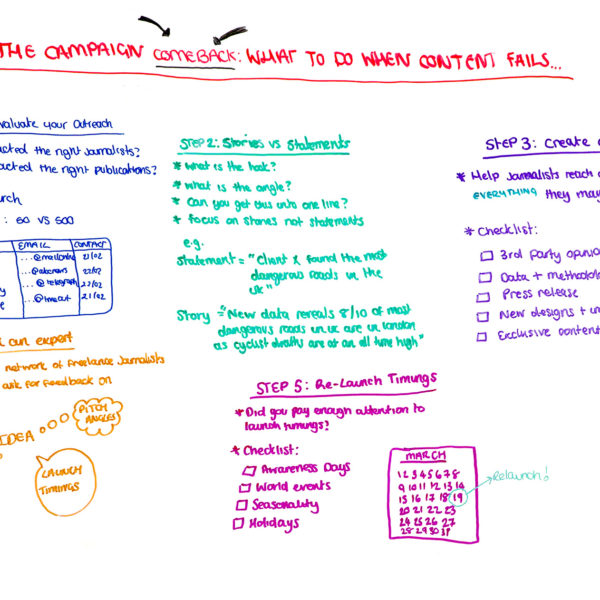 THE CAMPAIGN COMEBACK: WHAT TO DO WHEN CONTENT FAILS...
valuate your Outreach
acted the right journalists?
acted the right publications?
rch
: 60 VS 500
EMAIL CONTACT
...@mailonline 21/02
22/02
...@telegraph 22/02
...@timeout 21/02
can expert
network of freelance journalists
ask for feedback on
IDEA
PITCH ANGLES
LAUNCH TIMINGS
STEP 2: Stories vs Statements
* What is the hook?
* What is the angle?
* Can you get this into one line?
* focus on stories not statements
e.g.
Statement = "Client X found the most
dangerous roads in the
UK"
Story = "New data reveals 8/10 of most
dangerous roads in UK are in London
as cyclist deaths are at an all time high"
STEP 3: Create
* Help Journalists reach
EVERYTHING they may
* Checklist:
3rd party opinio
Data + methodolo
Press release
New designs + im
Exclusive content
STEP 5: Re-Launch Timings
* Did you pay enough attention to
launch timings?
* Checklist:
Awareness Days
World events
Seasonality
Holidays
MARCH
1 2 3 4 5 6 7 8
9 10 11 12 13 14
15 16 17 18 19
20 21 22 23
24 25 26 27
28 29 30 31
Relaunch!